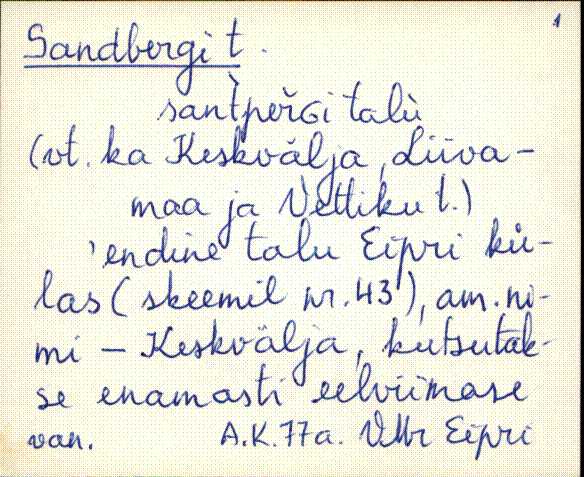 1
Sandbergi t.
sant̀pěrGi talù
(vt. ka Keskvälja, Liiva-
maa ja Vettiku t.)
'endine talu Eipri kü-
las (skeemil nr. 43), am. ni-
mi – Keskvälja, kutsutak-
se enamasti eelviimase
van. A.K. 77a. VMr Eipri